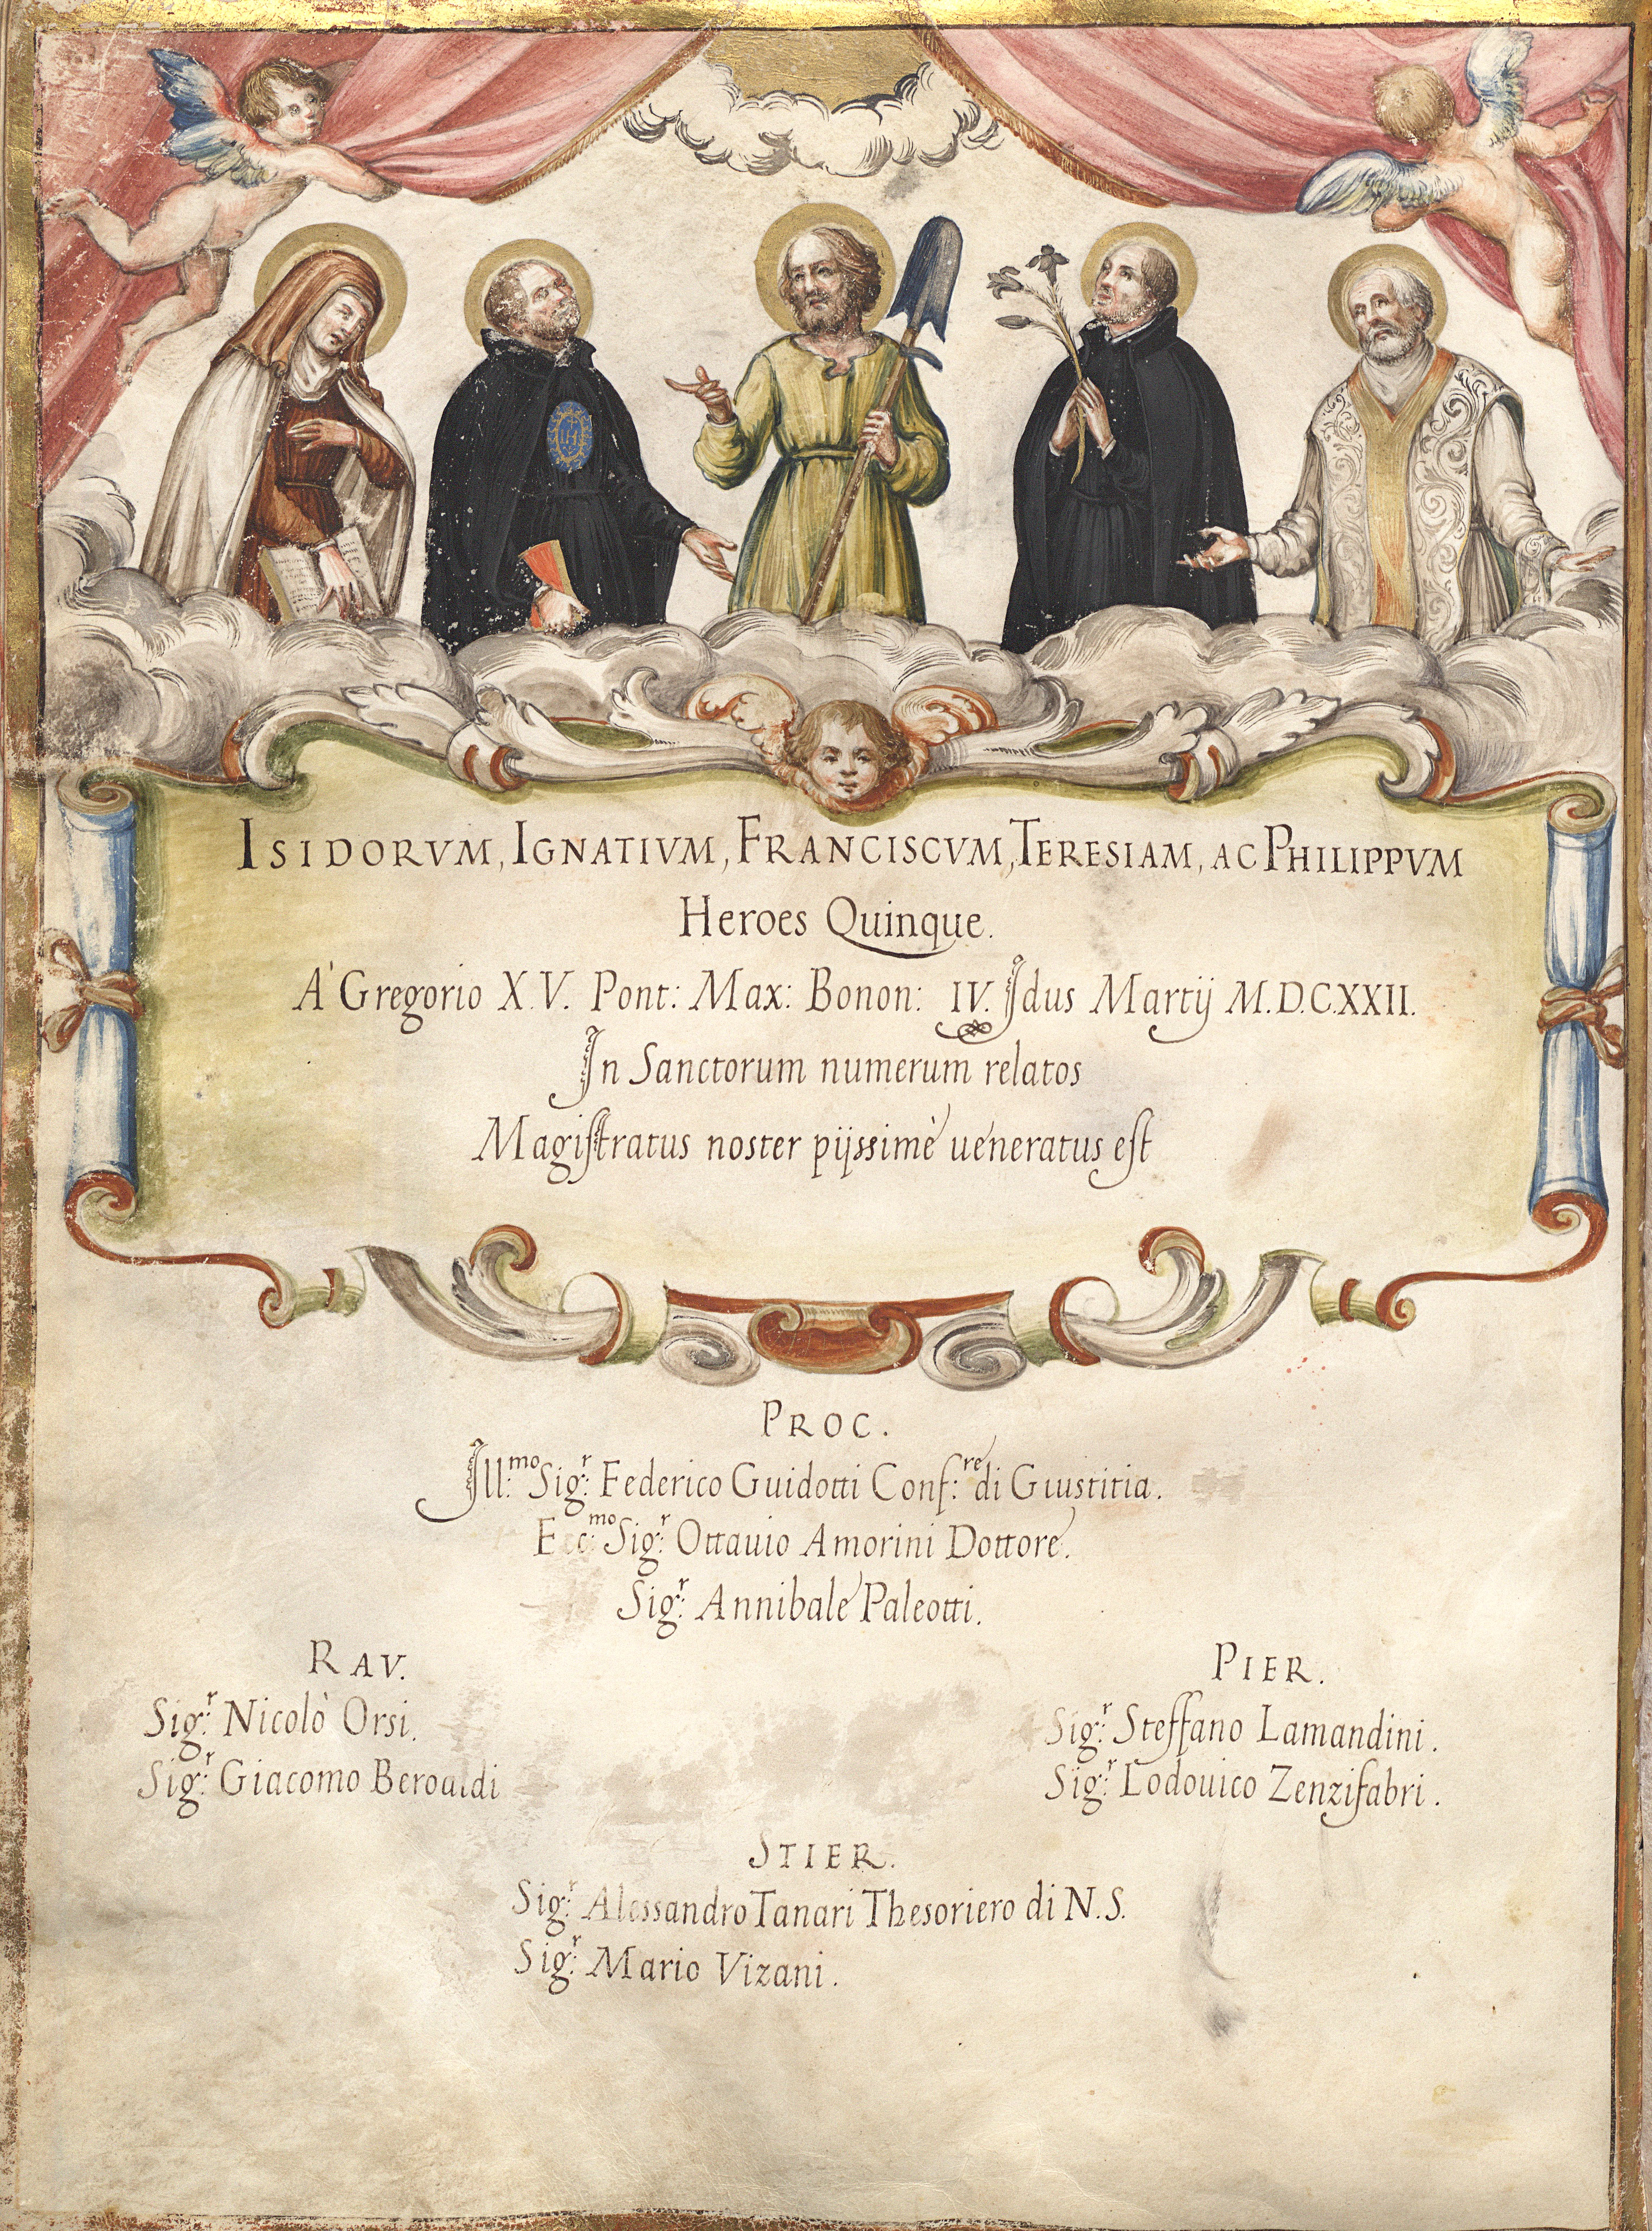 IHS
ISIDORVM, IGNATIVM, FRANCISCVM, TERESIAM, AC PHILIPPVM
Heroes Quinque.
A' Gregorio X.V. Pont: Max: Bonon: IV. Idus Martij M.D.C.XXII.
In Sanctorum numerum relatos
Magistratus noster pijssimè ueneratus est
PROC.
Ill:mo Sig:r Federico Guidotti Conf:re di Giustitia.
Ecc:mo Sig:r Ottauio Amorini Dottore.
Sig:r Annibale Paleotti.
RAV.
Sig:r Nicolò Orsi.
Sig:r Giacomo Beroaldi
PIER.
Sig:r Steffano Lamandini.
Sig:r Lodouico Zenzifabri.
STIER.
Sig:r Alessandro Tanari Thesoriero di N.S.
Sig:r Mario Vizani.